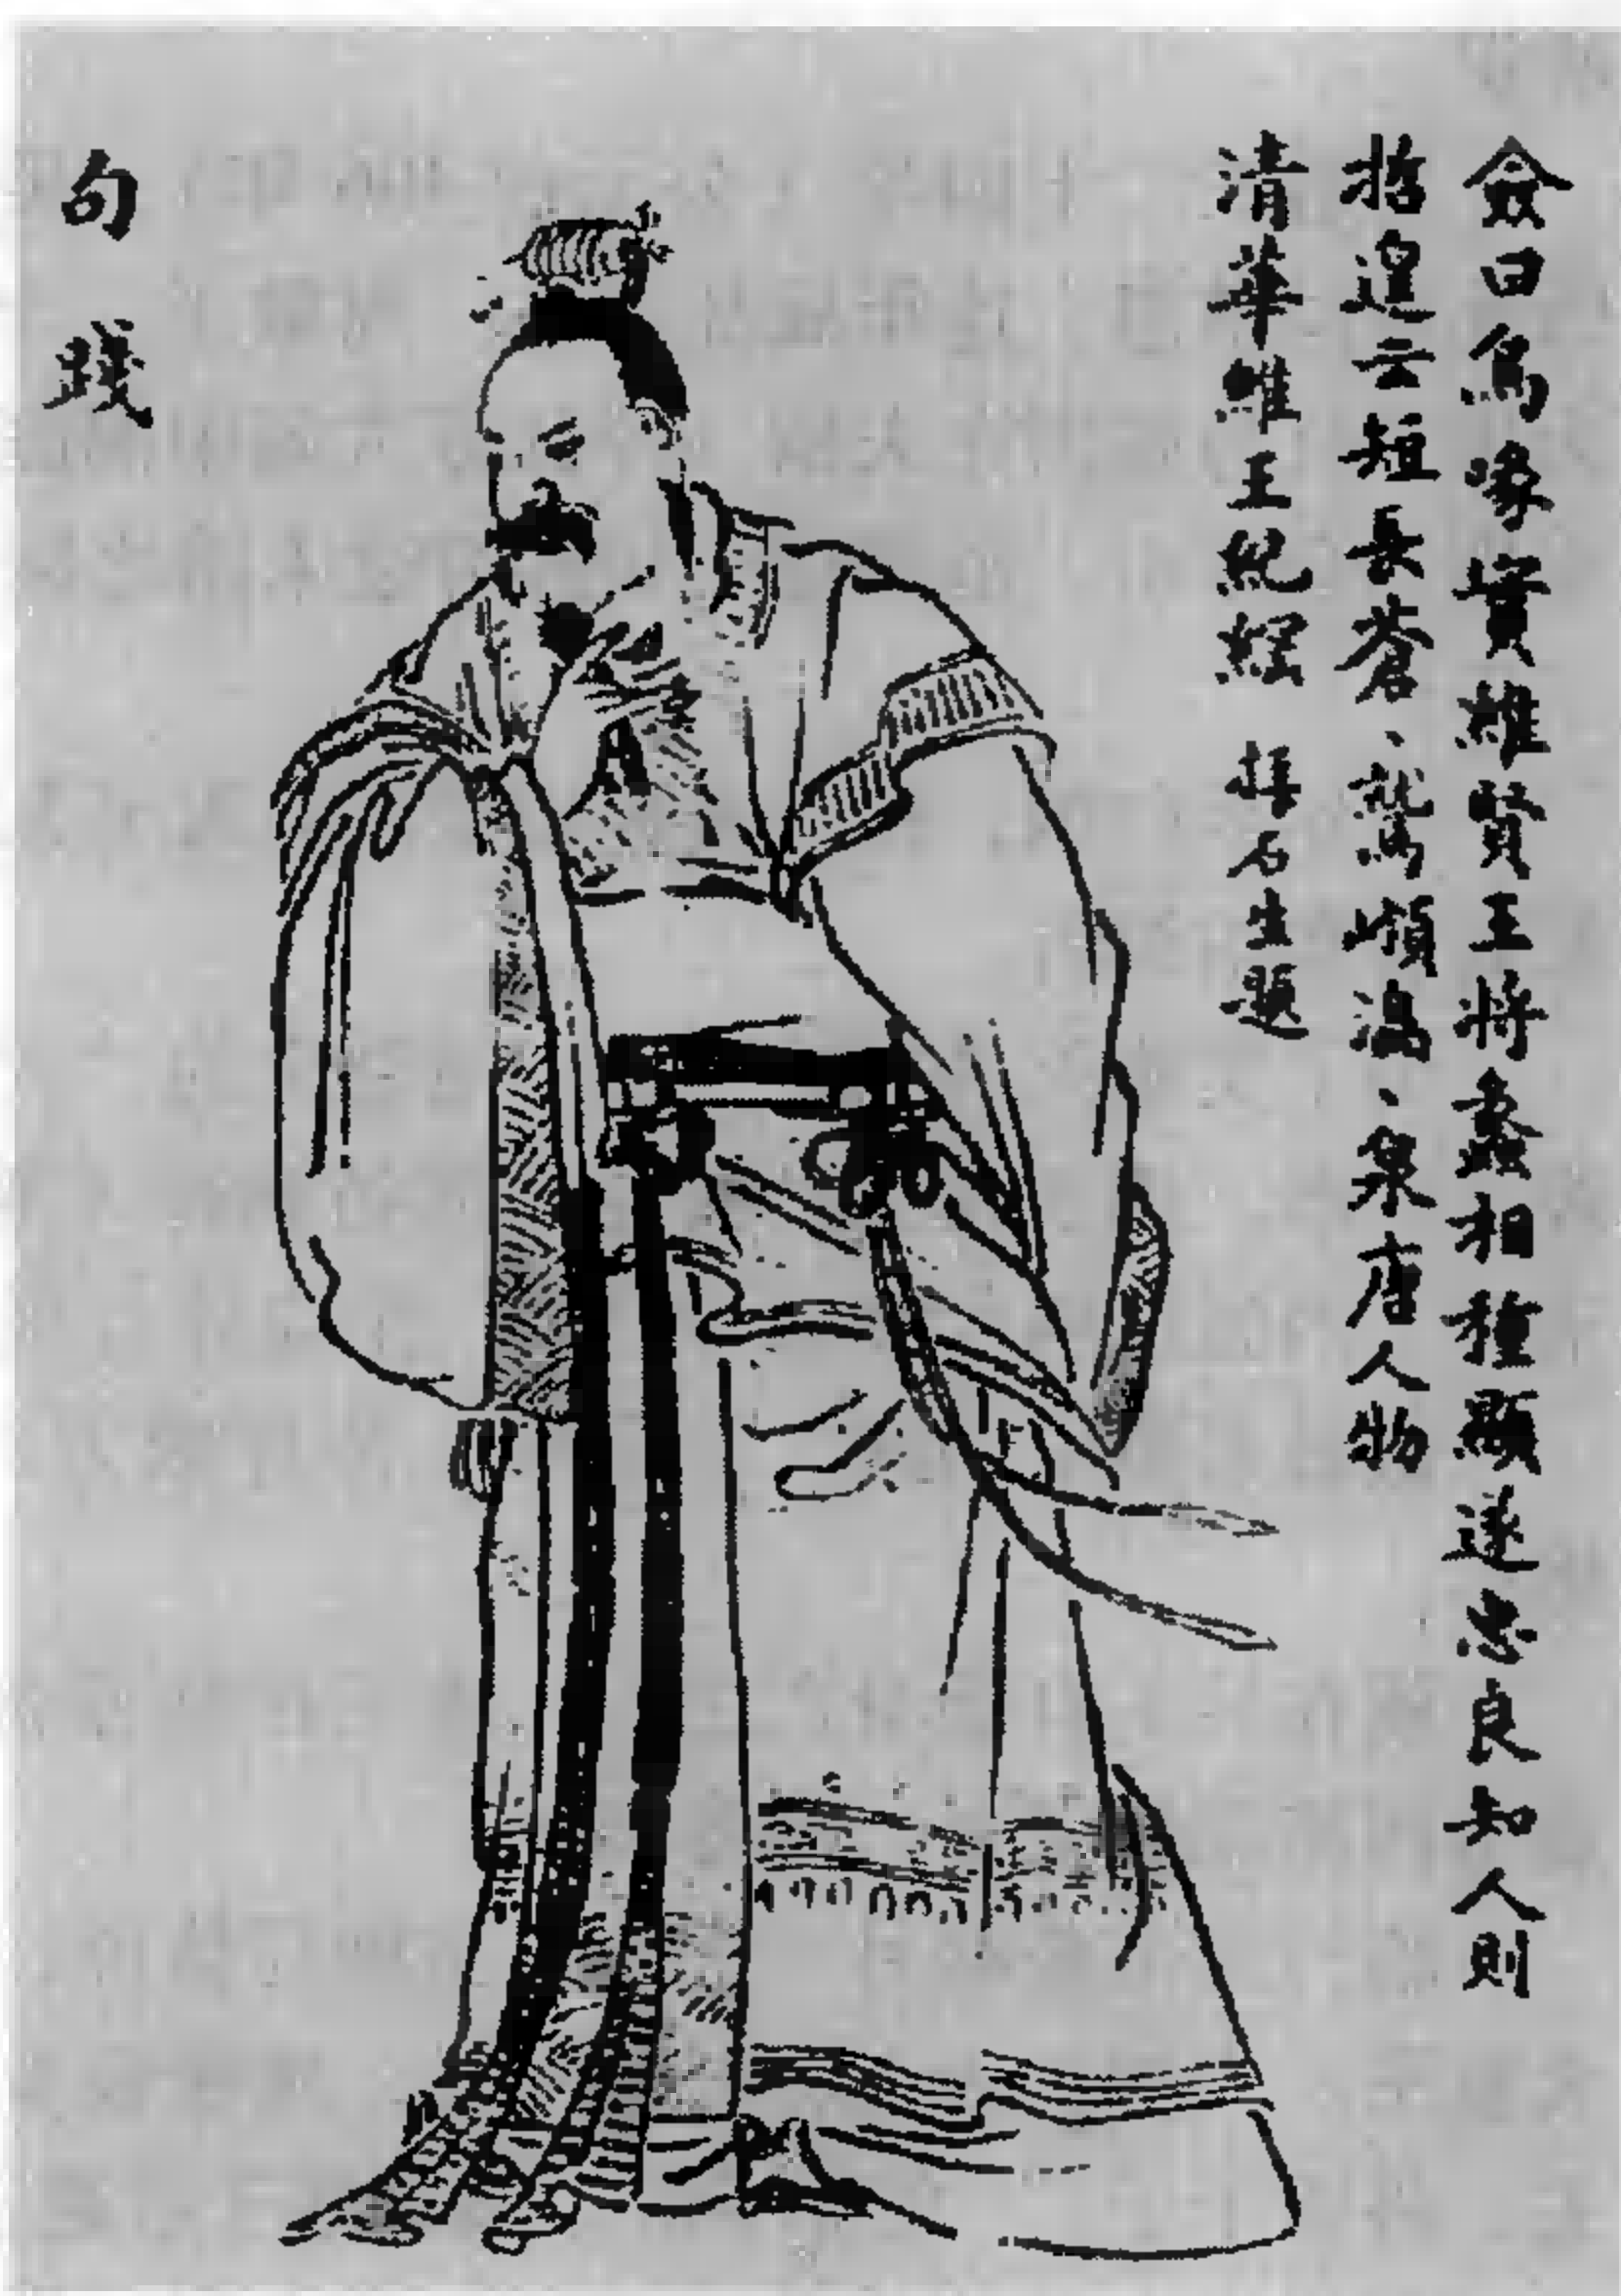 僉曰鳥喙實維賢王將蠡相種顯遂忠良知人則
哲遑云短長蒼、鷲嶺、泉唐人物
清華維王紀經 石生題
句踐